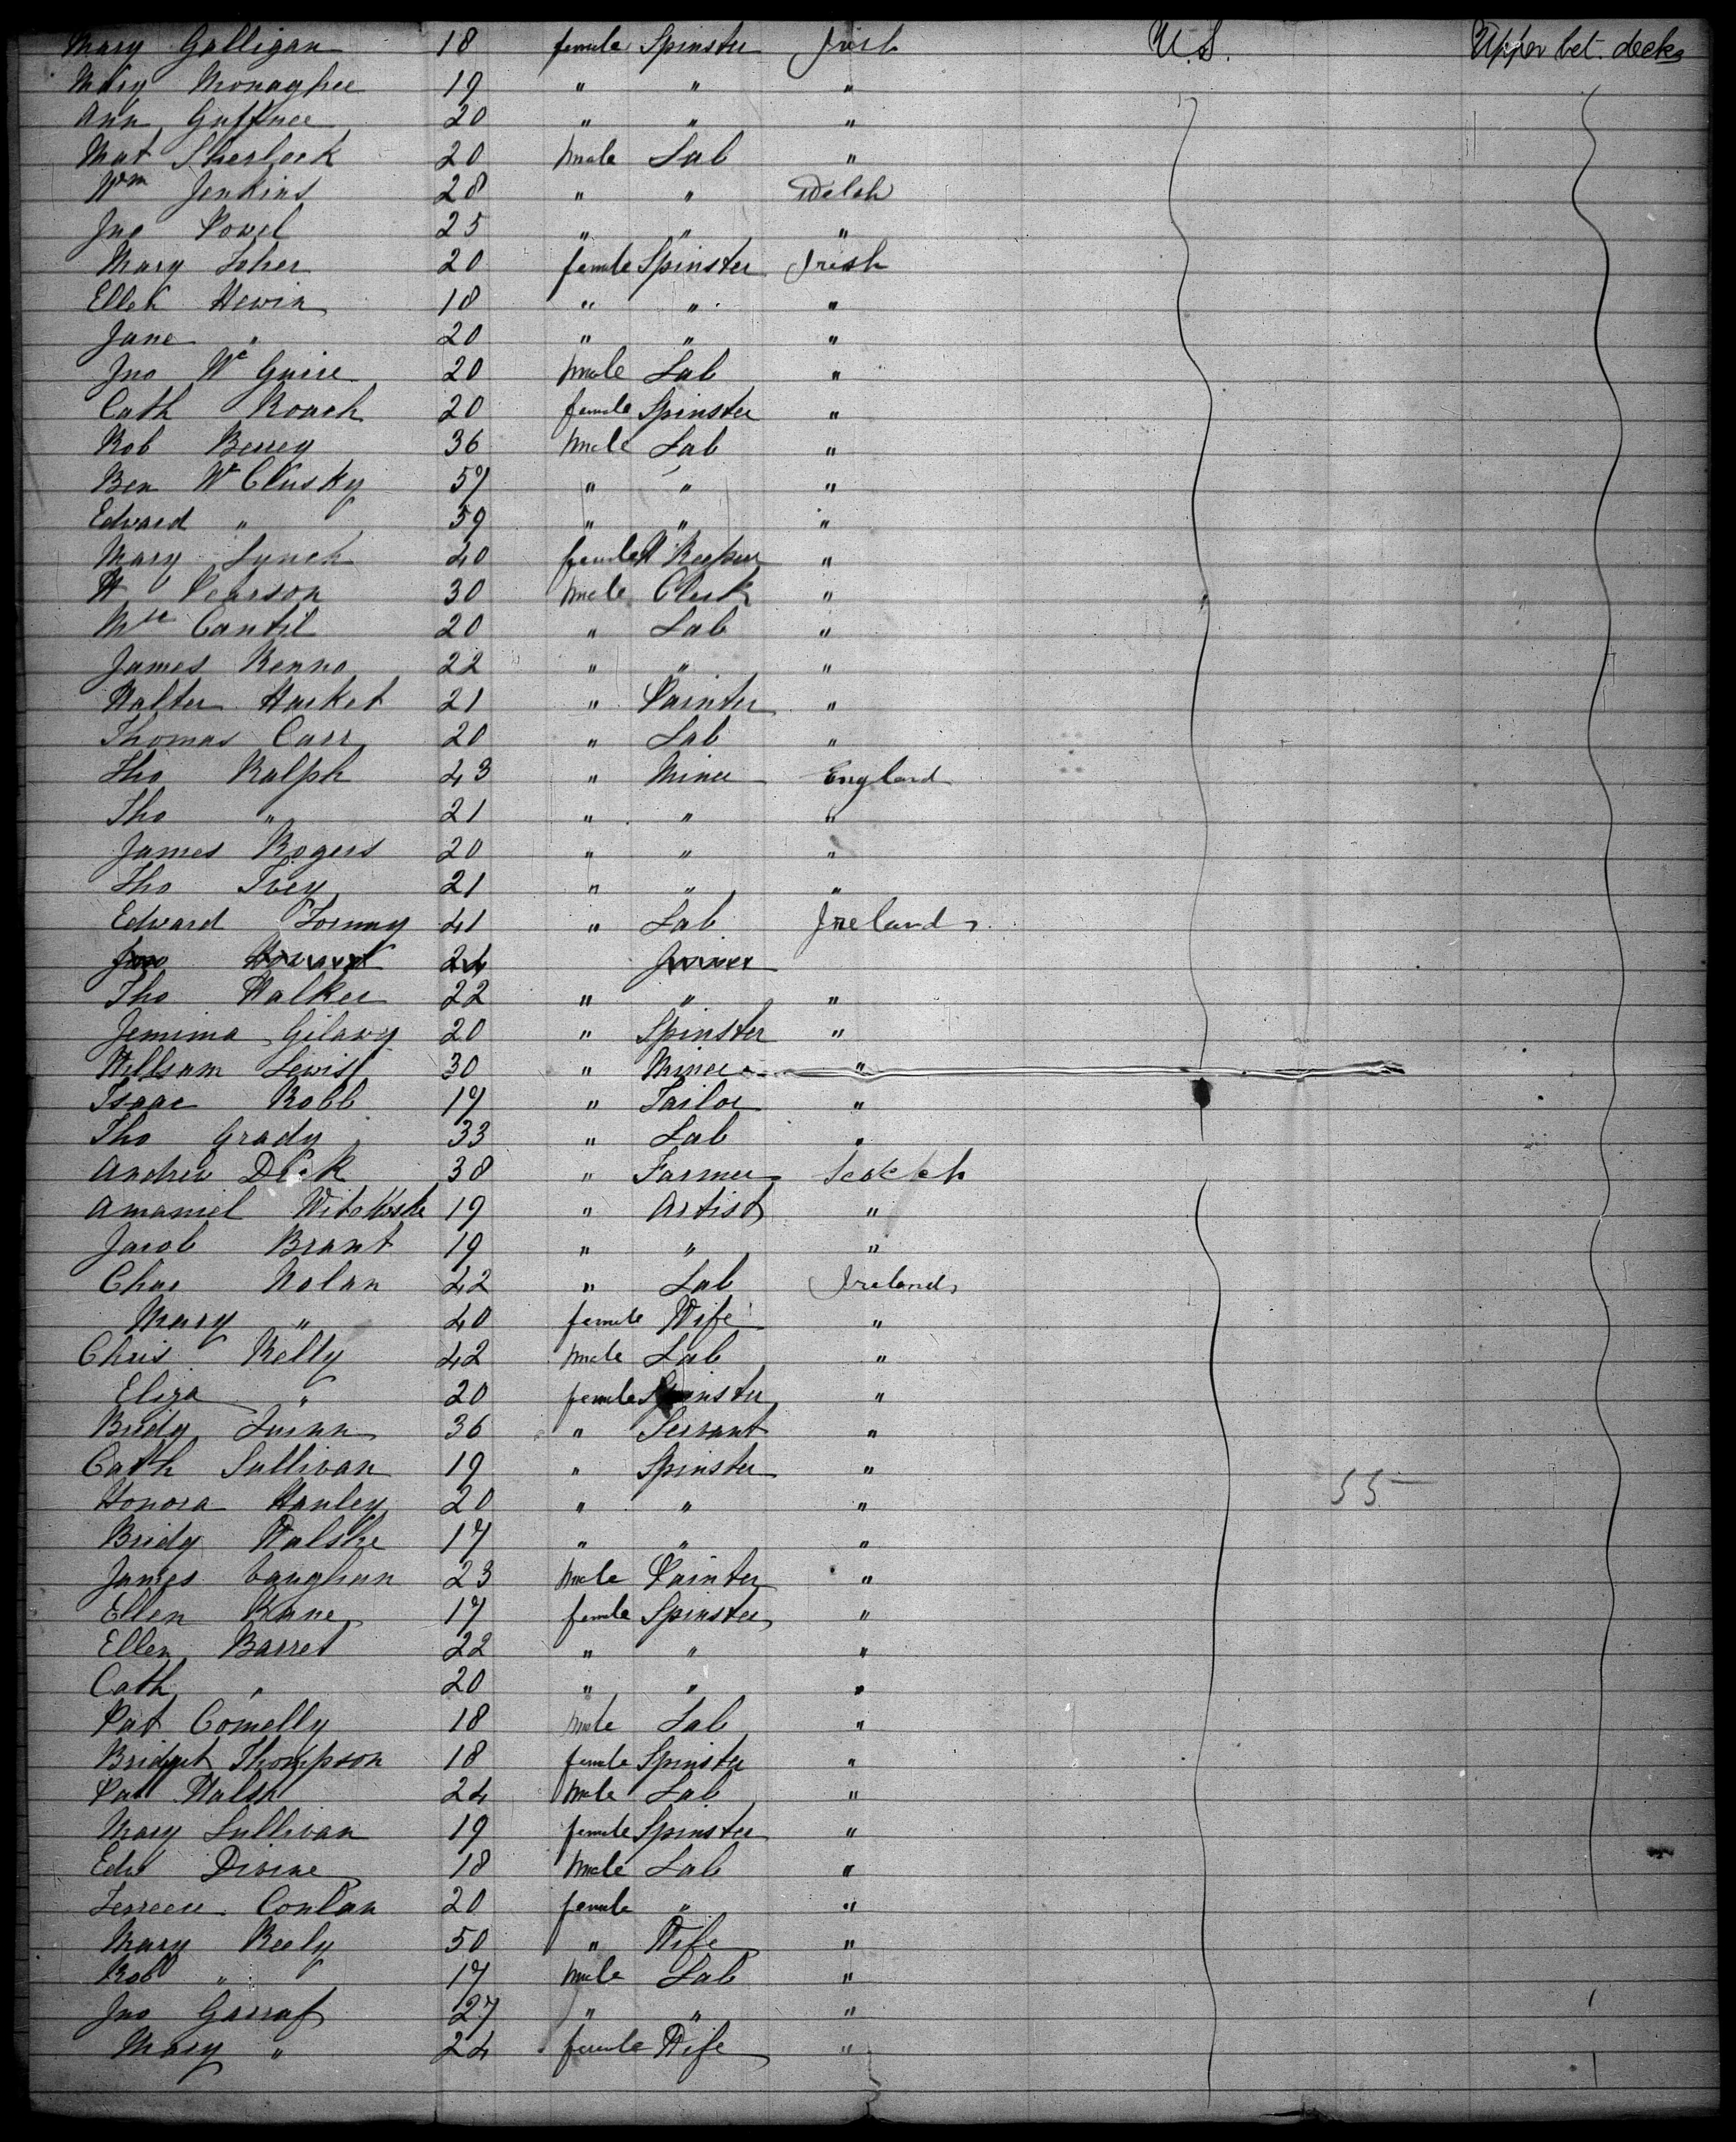 Mary Galligan 18 female Spinster Irish U.S. Upper bet. decks
Mary Monaghee 19 " " "
Ann Guffnee 20 " " "
Mat Sherlock 20 male Lab "
Wm Jenkins 28 " " Welsh
Jno Powel 25 " " "
Mary Toher 20 female Spinster Irish
Ellen Hewin 18 " " "
Jane " 20 " " "
Jno Mc Guire 20 male Lab "
Cath Roach 20 female Spinster "
Rob Berrey 36 male Lab "
Ben Mc Clusky 57 " " "
Edward " 59 " " "
Mary Lynch 40 female H Keeper "
H Pearson 30 male Clerk "
Cantil 20 " Lab "
James Kenno 22 " " "
Walter Hacket 21 " Painter "
Thomas Carr 20 " Lab "
Tho Ralph 43 " Miner England
Tho " 21 " " "
James Rogers 20 " " "
Tho Ivey 21 " " "
Edward Tormay 41 " Lab Ireland
Jno Howard 24 Joiner
Tho Walker 22 " " "
Jemima Gilawy 20 " Spinster "
William Lewis 30 " Miner "
Isaac Robb 17 " Tailor "
Tho Grady 33 " Lab "
Andrew Dick 38 " Farmer Scotch
Amamiel Witokoske 19 " Artist "
Jacob Brant 19 " " "
Chas Nolan 42 " Lab Ireland
Mary " 40 female Wife "
Chris Kelly 42 male Lab "
Eliza " 20 female Spinster "
Bridy Quinn 36 " Servant "
Cath Sullivan 19 " Spinster "
Honora Hanley 20 " " " 55
Bridy Walshe 17 " " "
James Vaughan 23 male Painter "
Ellen Kane 17 female Spinster "
Ellen Barret 22 " " "
Cath " 20 " " "
Pat Comelly 18 male Lab "
Bridget Thompson 18 female Spinster "
Pat Walsh 24 male Lab "
Mary Sullivan 19 female Spinster "
Edw Divine 18 male Lab "
Terreece Conlan 20 female " "
Mary Keely 50 " Wife "
Rob " 17 male Lab "
Jno Garraf 27 " " "
Mary " 24 female Wife "